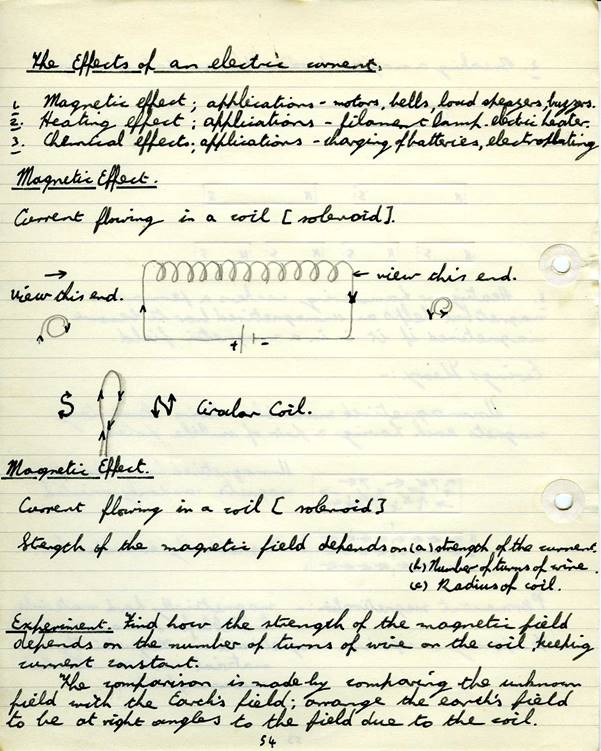 The Effects of an electric current.
1. Magnetic effect; applications - motors, bells, loud speakers, buzzers.
2. Heating effect; applications - filament lamp. electric heater.
3. Chemical effects; applications - charging of batteries, electroplating
Magnetic Effect.
Current flowing in a coil [solenoid].
→ ← view this end.
view this end.
+ -
S N Circular Coil.
Magnetic Effect.
Current flowing in a coil [solenoid]
Strength of the magnetic field depends on (a) strength of the current.
(b) Number of turns of wire.
(c) Radius of coil.
Experiment. Find how the strength of the magnetic field
depends on the number of turns of wire on the coil, keeping
current constant.
The comparison is made by comparing the unknown
field with the Earth's field; arrange the earth's field
to be at right angles to the field due to the coil.
54